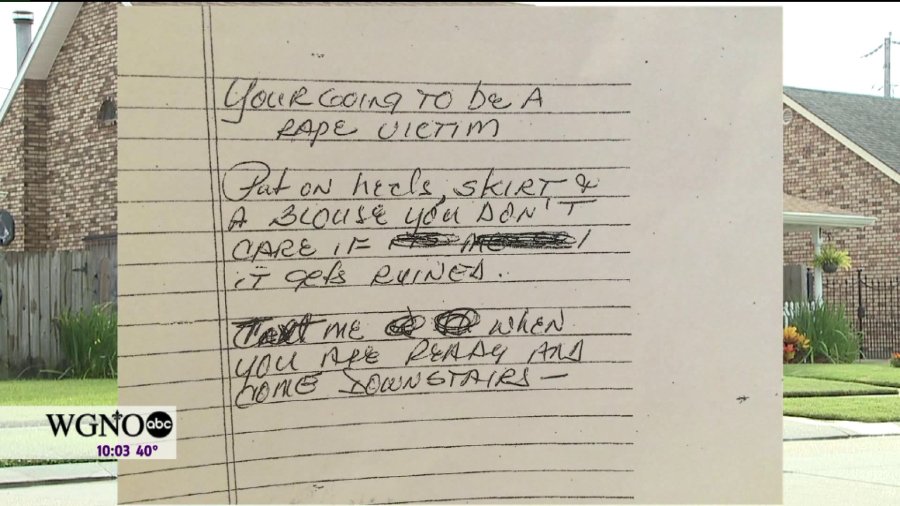 YOUR GOING TO be A
RAPE VICTIM
Put ON heels, SKIRT &
A BLOUSE YOU DON'T
CARE IF
iT gets RUINED.
TEXT ME WHEN
YOU ARE READY AND
COME DOWNSTAIRS —
WGNO abc
10:03 40°